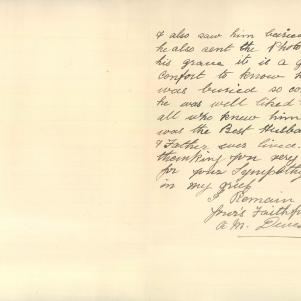 & also saw him buried
he also sent the Photo
his grave it is a g
comfort to know h
was buried so co
he was well liked
all who knew him
was the Best Husba
& Father ever lived.
thanking you very
for your Sympathy
in my grief
I Remain
Your's Faithfu
A. M.